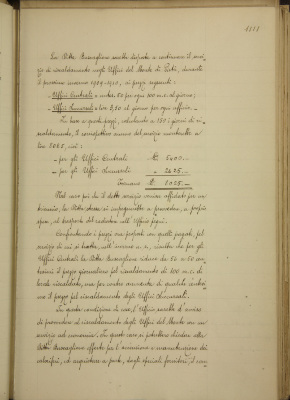 La Ditta Buscaglione sarebbe disposta a continuare il servi-
zio di riscaldamento negli Uffici del Monte di Pietà, durante
il prossimo inverno 1909-1910, ai prezzi seguenti:
- Uffici Centrali per ogni 100 m.c. al giorno;
- Uffici Succursali a lire 3,50 al giorno per ogni ufficio. -
In base a questi prezzi, calcolando a 150 i giorni di ri-
scaldamento, il corrispettivo annuo del servizio ammonterebbe a
lire 8025, cioè:
- per gli Uffici Centrali £. 5400.-
- per gli Uffici Succursali " 2625.-
Totale £. 8025.-
Nel caso poi che il detto servizio venisse affidato per un
la Ditta stessa si impegnerebbe a provvedere, a proprie
spese, al trasporto dei radiatori negli Uffici
Confrontando i prezzi ora proposti con quelli pagati pel
servizio di cui si tratta, nell'inverno u. s., risulta che per gli
Uffici Centrali la Ditta Buscaglione riduce da 56 a 50 cen-
tesimi il prezzo giornaliero pel riscaldamento di 100 m.c. di
locale riscaldato, ma per contro aumenta di qualche centesi-
mo il prezzo pel riscaldamento degli Uffici Succursali.
In queste condizioni di cose, l'Ufficio sarebbe d'avviso
di provvedere al riscaldamento degli Uffici del Monte con un
servizio ad economia. In questo caso si potrebbe chiedere alla
Ditta Buscaglione offerta per l'accensione e manutenzione dei
caloriferi, ed acquistare a parte, dagli speciali fornitori, il car-